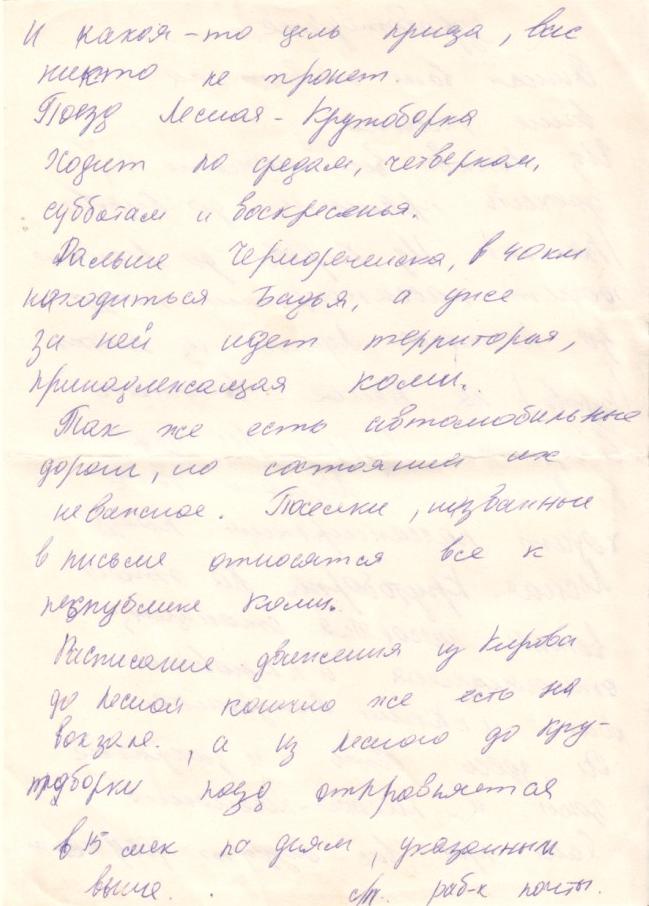 И какая-то цель приезда, вас
никто не тронет.
Поезд Лесная - Крутоборка
ходит по средам, четвергам,
субботам и воскресенья.
Дальше Чернореченска, в 40 км
находиться Бадья, а уже
за ней идет территория,
принадлежащая коми.
Так же есть автомобильные
дороги, но состояний их
неважное. Поселки, названные
в письме относятся все к
республике Коми.
Расписание движения из Кирова
до Лесной конечно же есть на
вокзале, а из Лесного до Кру-
тоборки поезд отправляется
в 15 мск по дням, указанным
выше. с/т. раб-к почты.